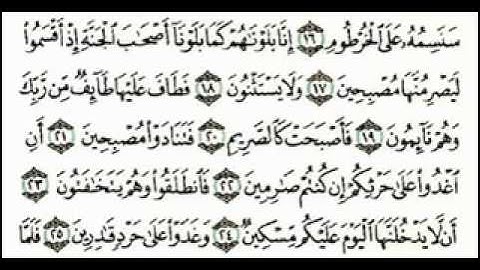 سَنَسِمُهُۥ عَلَى ٱلۡخُرۡطُومِ ١٦ إِنَّا بَلَوۡنَٰهُمۡ كَمَا بَلَوۡنَآ أَصۡحَٰبَ ٱلۡجَنَّةِ إِذۡ أَقۡسَمُواْ
لَيَصۡرِمُنَّهَا مُصۡبِحِينَ ١٧ وَلَا يَسۡتَثۡنُونَ ١٨ فَطَافَ عَلَيۡهَا طَآئِفٞ مِّن رَّبِّكَ
وَهُمۡ نَآئِمُونَ ١٩ فَأَصۡبَحَتۡ كَٱلصَّرِيمِ ٢٠ فَتَنَادَوۡاْ مُصۡبِحِينَ ٢١ أَنِ
ٱغۡدُواْ عَلَىٰ حَرۡثِكُمۡ إِن كُنتُمۡ صَٰرِمِينَ ٢٢ فَٱنطَلَقُواْ وَهُمۡ يَتَخَٰفَتُونَ ٢٣
أَن لَّا يَدۡخُلَنَّهَا ٱلۡيَوۡمَ عَلَيۡكُم مِّسۡكِينٞ ٢٤ وَغَدَوۡاْ عَلَىٰ حَرۡدٖ قَٰدِرِينَ ٢٥ فَلَمَّا